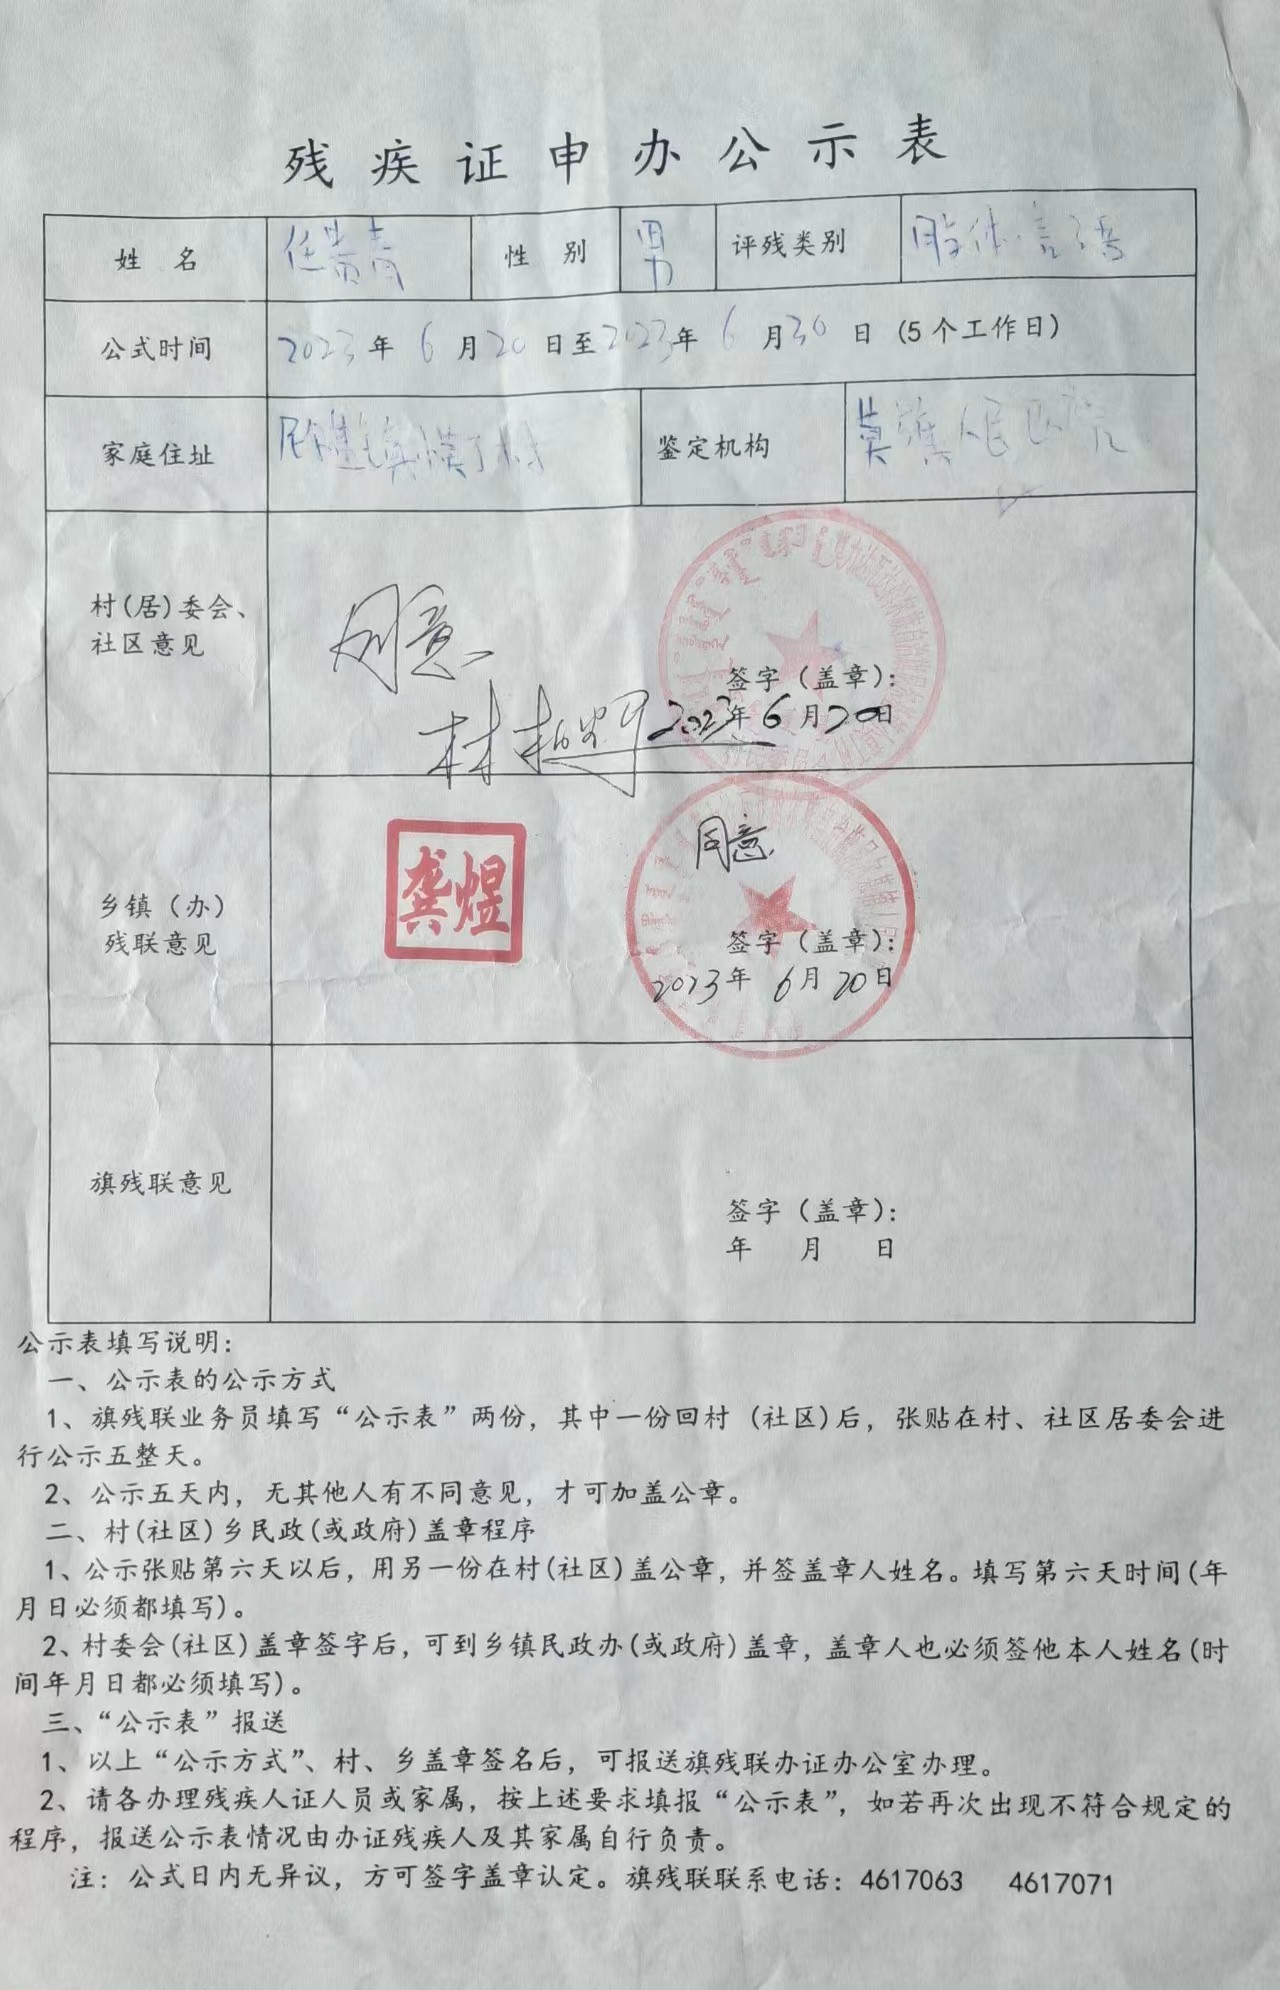 残疾证申办公示表
姓 名 任贵青 性 别 男 评残类别 肢体 言语
公式时间 2023年 6 月20日至2023年 6 月30日 (5个工作日)
家庭住址 尼尔基镇 村 鉴定机构 莫旗人民医院
村(居)委会、
社区意见
同意
签字（盖章）：
2023年6月20日
乡镇（办）
残联意见
龚煜
同意
签字（盖章）：
2023年 6月20日
旗残联意见
签字（盖章）：
年 月 日
公示表填写说明：
一、公示表的公示方式
1、旗残联业务员填写“公示表”两份，其中一份回村（社区)后，张贴在村、社区居委会进
行公示五整天。
2、公示五天内，无其他人有不同意见，才可加盖公章。
二、村(社区)乡民政(或政府)盖章程序
1、公示张贴第六天以后，用另一份在村(社区)盖公章，并签盖章人姓名。填写第六天时间(年
月日必须都填写)。
2、村委会(社区)盖章签字后，可到乡镇民政办(或政府)盖章，盖章人也必须签他本人姓名(时
间年月日都必须填写)。
三、“公示表”报送
1、以上“公示方式”、村、乡盖章签名后，可报送旗残联办证办公室办理。
2、请各办理残疾人证人员或家属，按上述要求填报“公示表”，如若再次出现不符合规定的
程序，报送公示表情况由办证残疾人及其家属自行负责。
注：公式日内无异议，方可签字盖章认定。旗残联联系电话：4617063 4617071